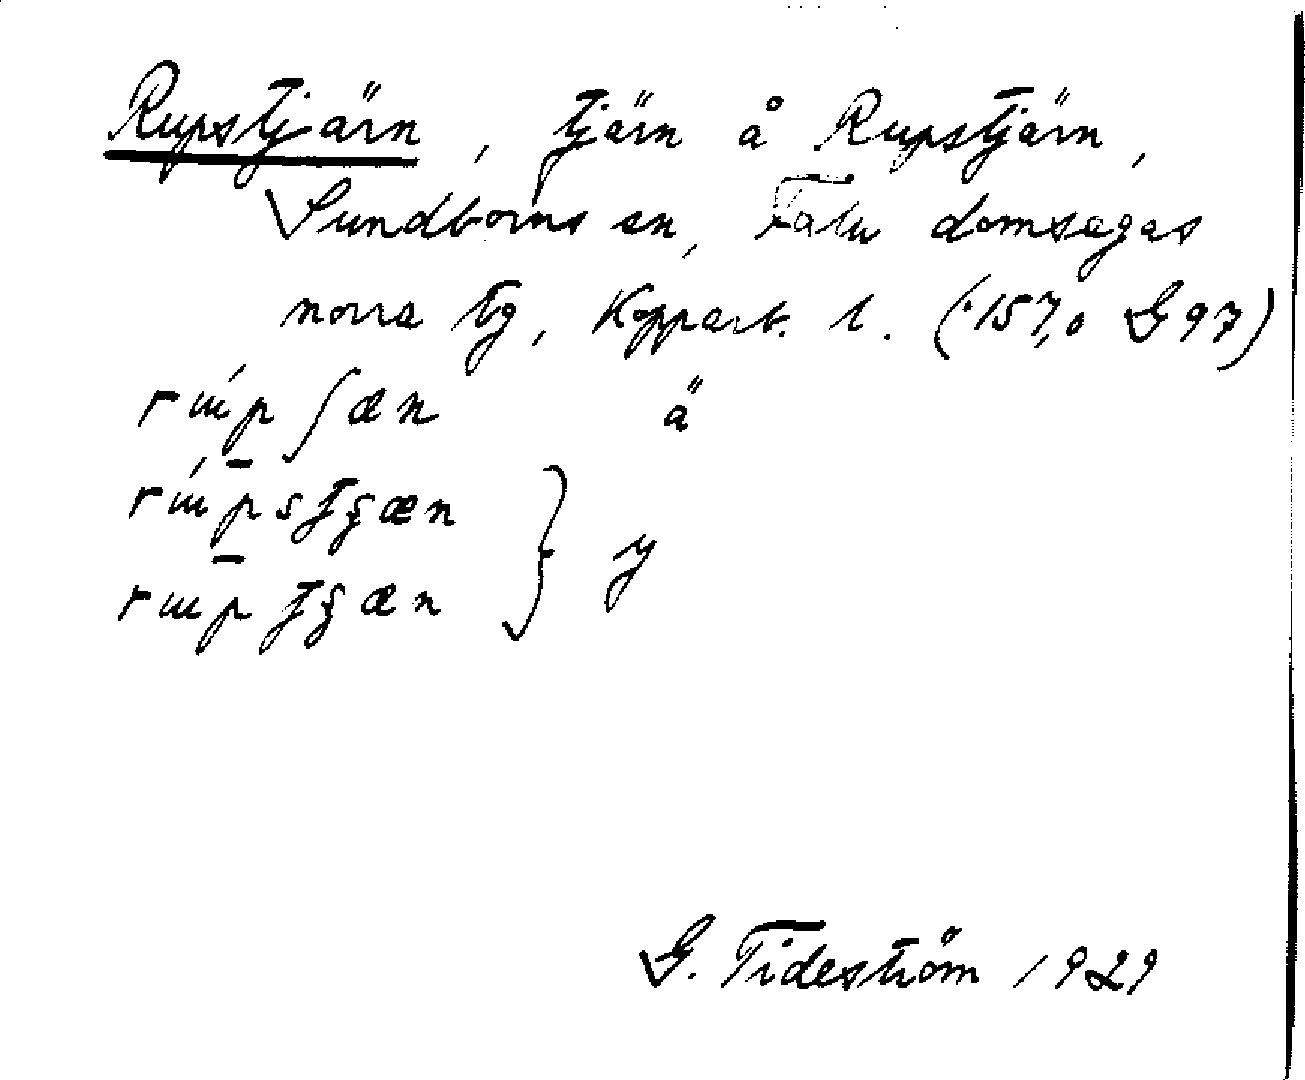 Rupstjärn, tjärn å Rupstjärn,
Sundborns sn, Falu domsagas
norra tg, Kopparb. l. (157,0 G97)
rɯ́p̱ʃæn ä
rɯ́p̱stʂæn
rɯptʂæn } y
G. Tideström 1929